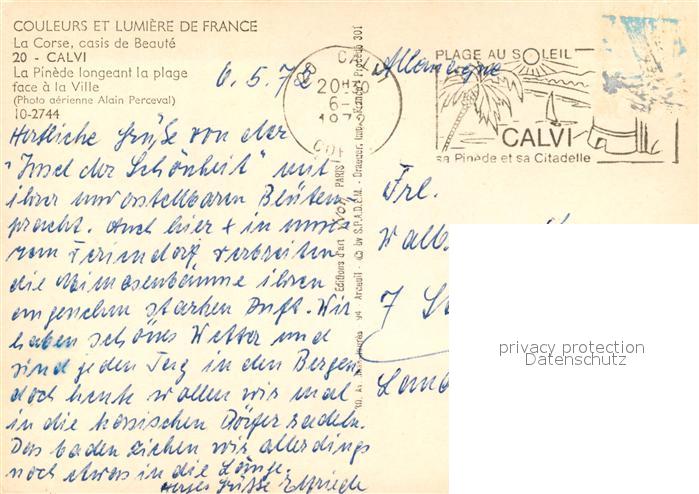 COULEURS ET LUMIÈRE DE FRANCE
La Corse, casis de Beauté
20 - CALVI
La Pinède longeant la plage
face à la Ville
(Photo aérienne Alain Perceval)
10-2744
6.5.72
Herzliche Grüße von der
"Insel der Schönheit" mit
ihrer unvorstellbaren Blüten-
pracht. Auch hier + in unse-
rem Feriendorf verbreiten
die Mimosenbäume ihren
angenehm starken Duft. Wir
haben schönes Wetter und
sind jeden Tag in den Bergen
doch heute wollen wir mal
in die korsischen Dörfer radeln.
Das baden ziehen wir allerdings
noch etwas in die Länge.
Grüsse Elfriede
CALVI
20H30
6-5
197
CORSE
PLAGE AU SOLEIL
CALVI
sa Pinède et sa Citadelle
Allemagne
Editions d'art YVON PARIS
Arcueil - © by S.P.A.D.E.M. - Draeger, imp.
Frl.
7
privacy protection
Datenschutz